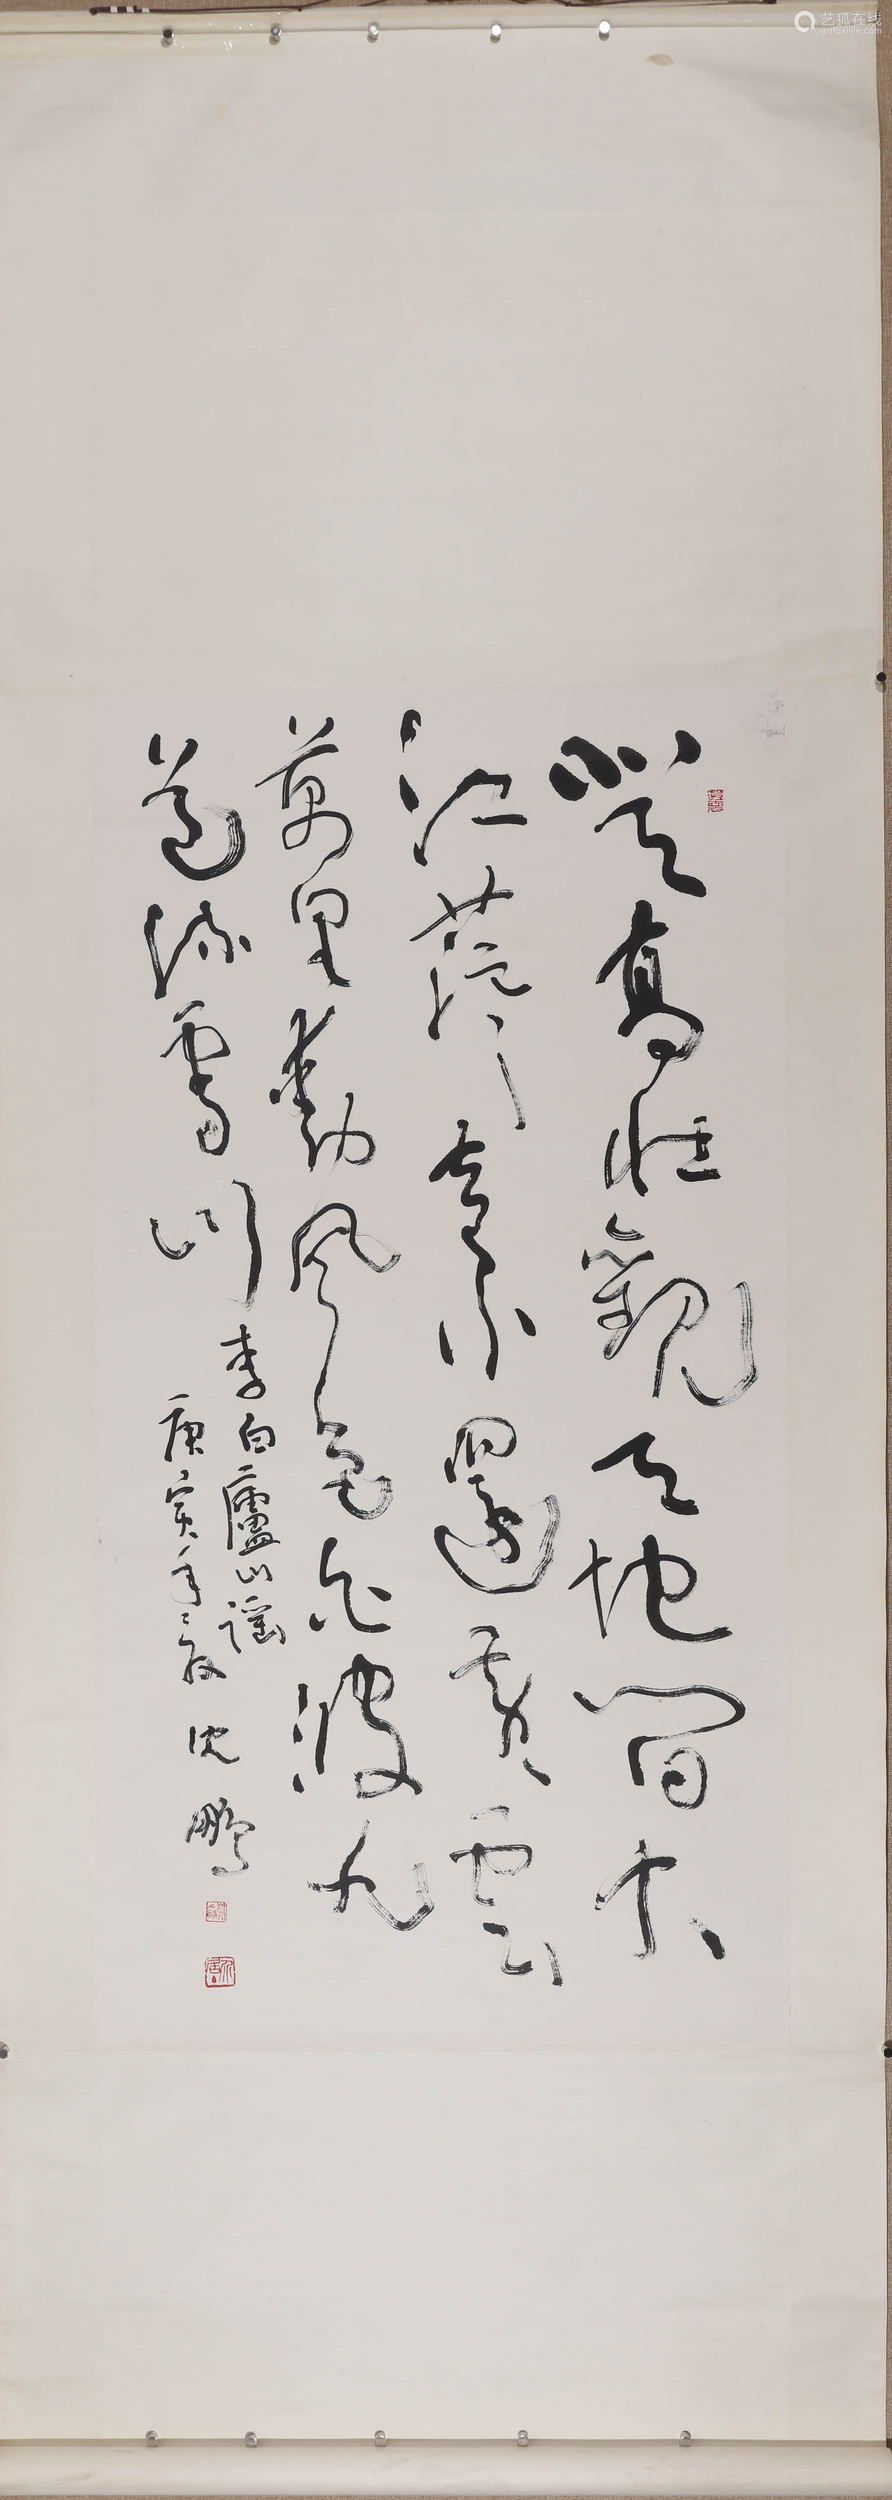 艺狐在线
artfoxlive.com
登高壯觀天地間大
江茫〻去不還黃雲
萬里動風色白波九
道流雪山
李白廬山謠
庚寅年 沈鵬